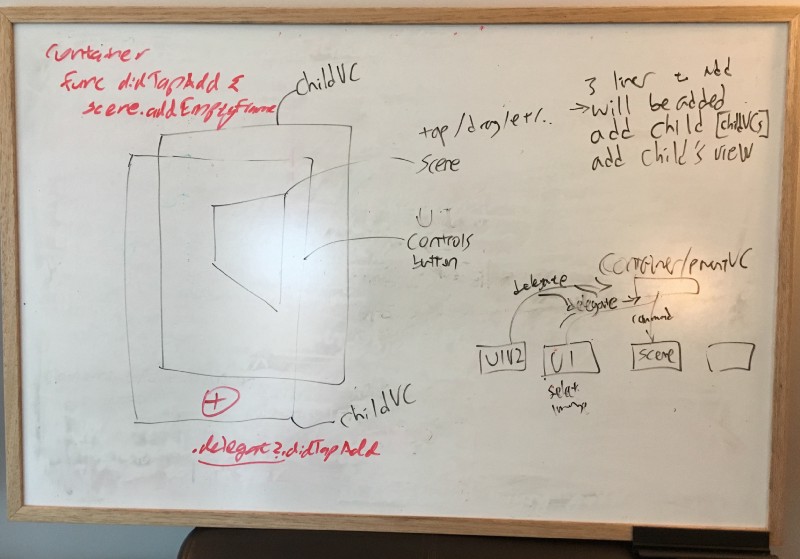 Container
func didTapAdd {
scene.addEmptyFrame
childVC
tap/drag/etc..
scene
UI
controls
button
3 lines to Add
→ will be added
add child [childVCs]
add child's view
Container/parentVC
delegate
delegate
command
UIV2
UI
scene
select
+
childVC
.delegate?.didTapAdd